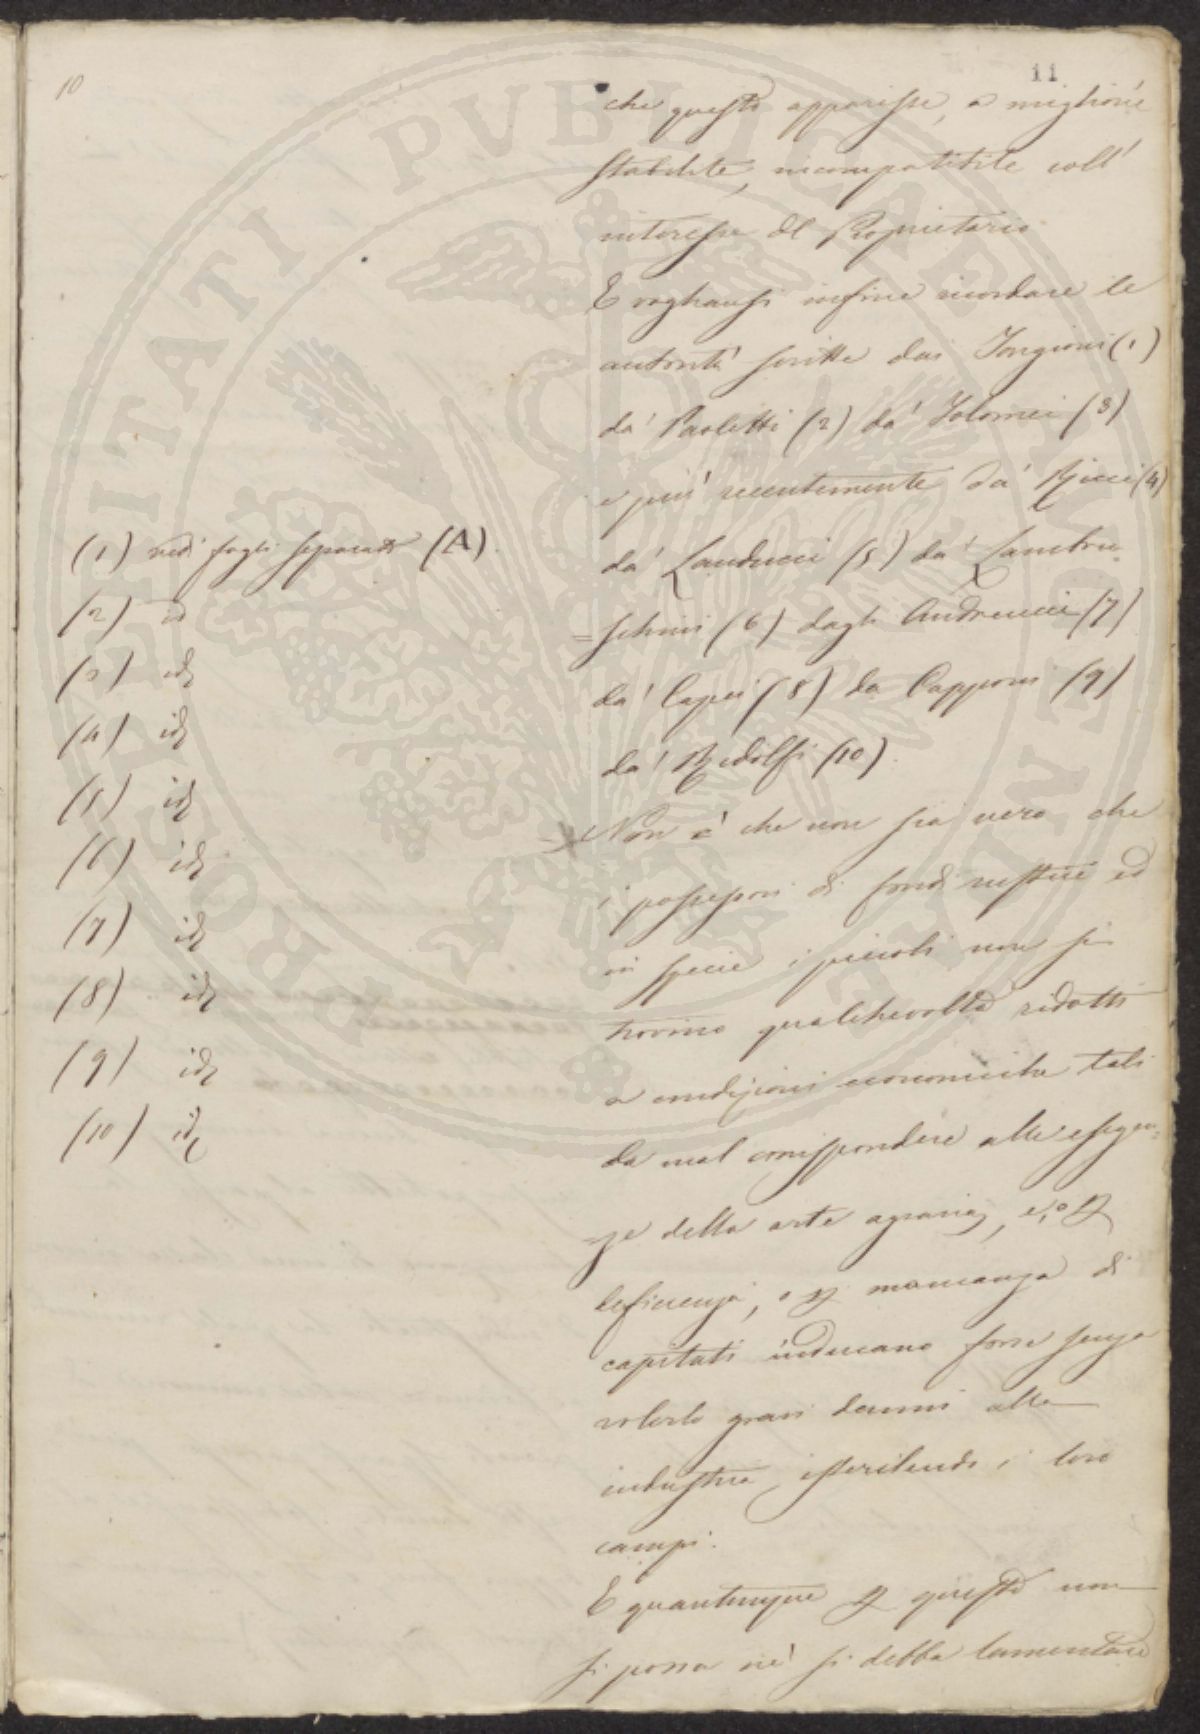 10
11
che questo apparisse, a migliorie
stabilite, incompatibile coll'
interesse del Proprietario.
E vogliansi infine ricordare le
autorità scritte dai Tongioni (1)
da' Paoletti (2) da' Tolomei (3)
e più recentemente da' Ricci (4)
da' Landucci (5) da' Lambru-
=schini (6) dagli Andreucci (7)
da' Capei (8) da Capponi (9)
da' Ridolfi (10).
Non è che non sia vero che
i possessori di fondi rustici ed
in specie i piccoli non si
trovino qualchevolta ridotti
a condizioni economiche tali
da mal corrispondere alle esigen=
=ze della arte agraria, e, o p
deficienza, o p mancanza di
capitali inducano forse senza
volerlo gravi danni alla
industria isterilendo i loro
campi.
E quantunque p questo non
si possa nè si debba lamentare
(1) vedi fogli separati (A)
(2) id
(3) id
(4) id
(5) id
(6) id
(7) id
(8) id
(9) id
(10) id